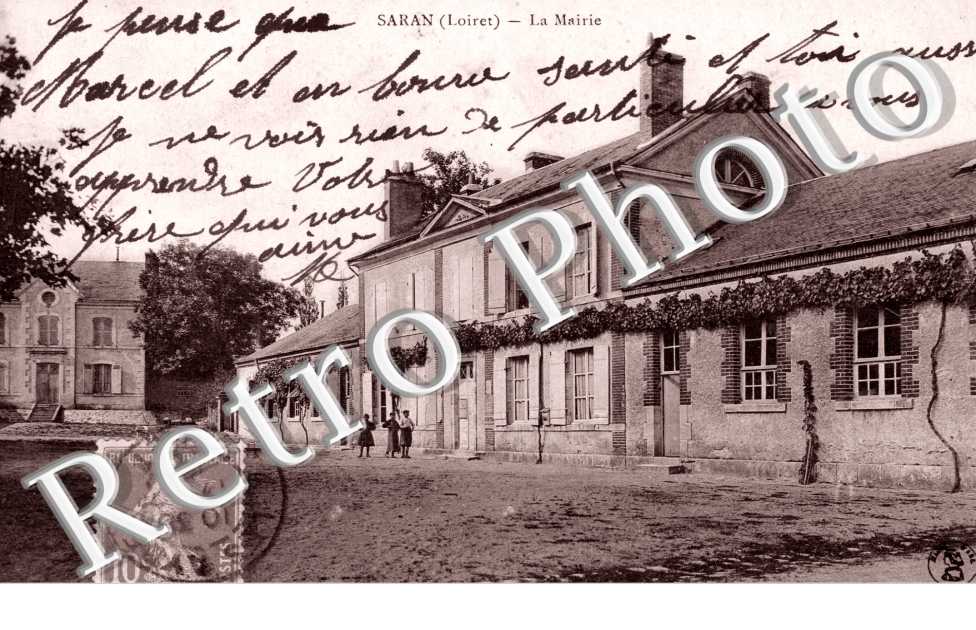 SARAN (Loiret) — La Mairie
je pense que
Marcel et en bonne santé et toi aussi
je ne vois rien de particulier a vous
apprendre Votre
frère qui vous
aime
Retro Photo
10
POSTES